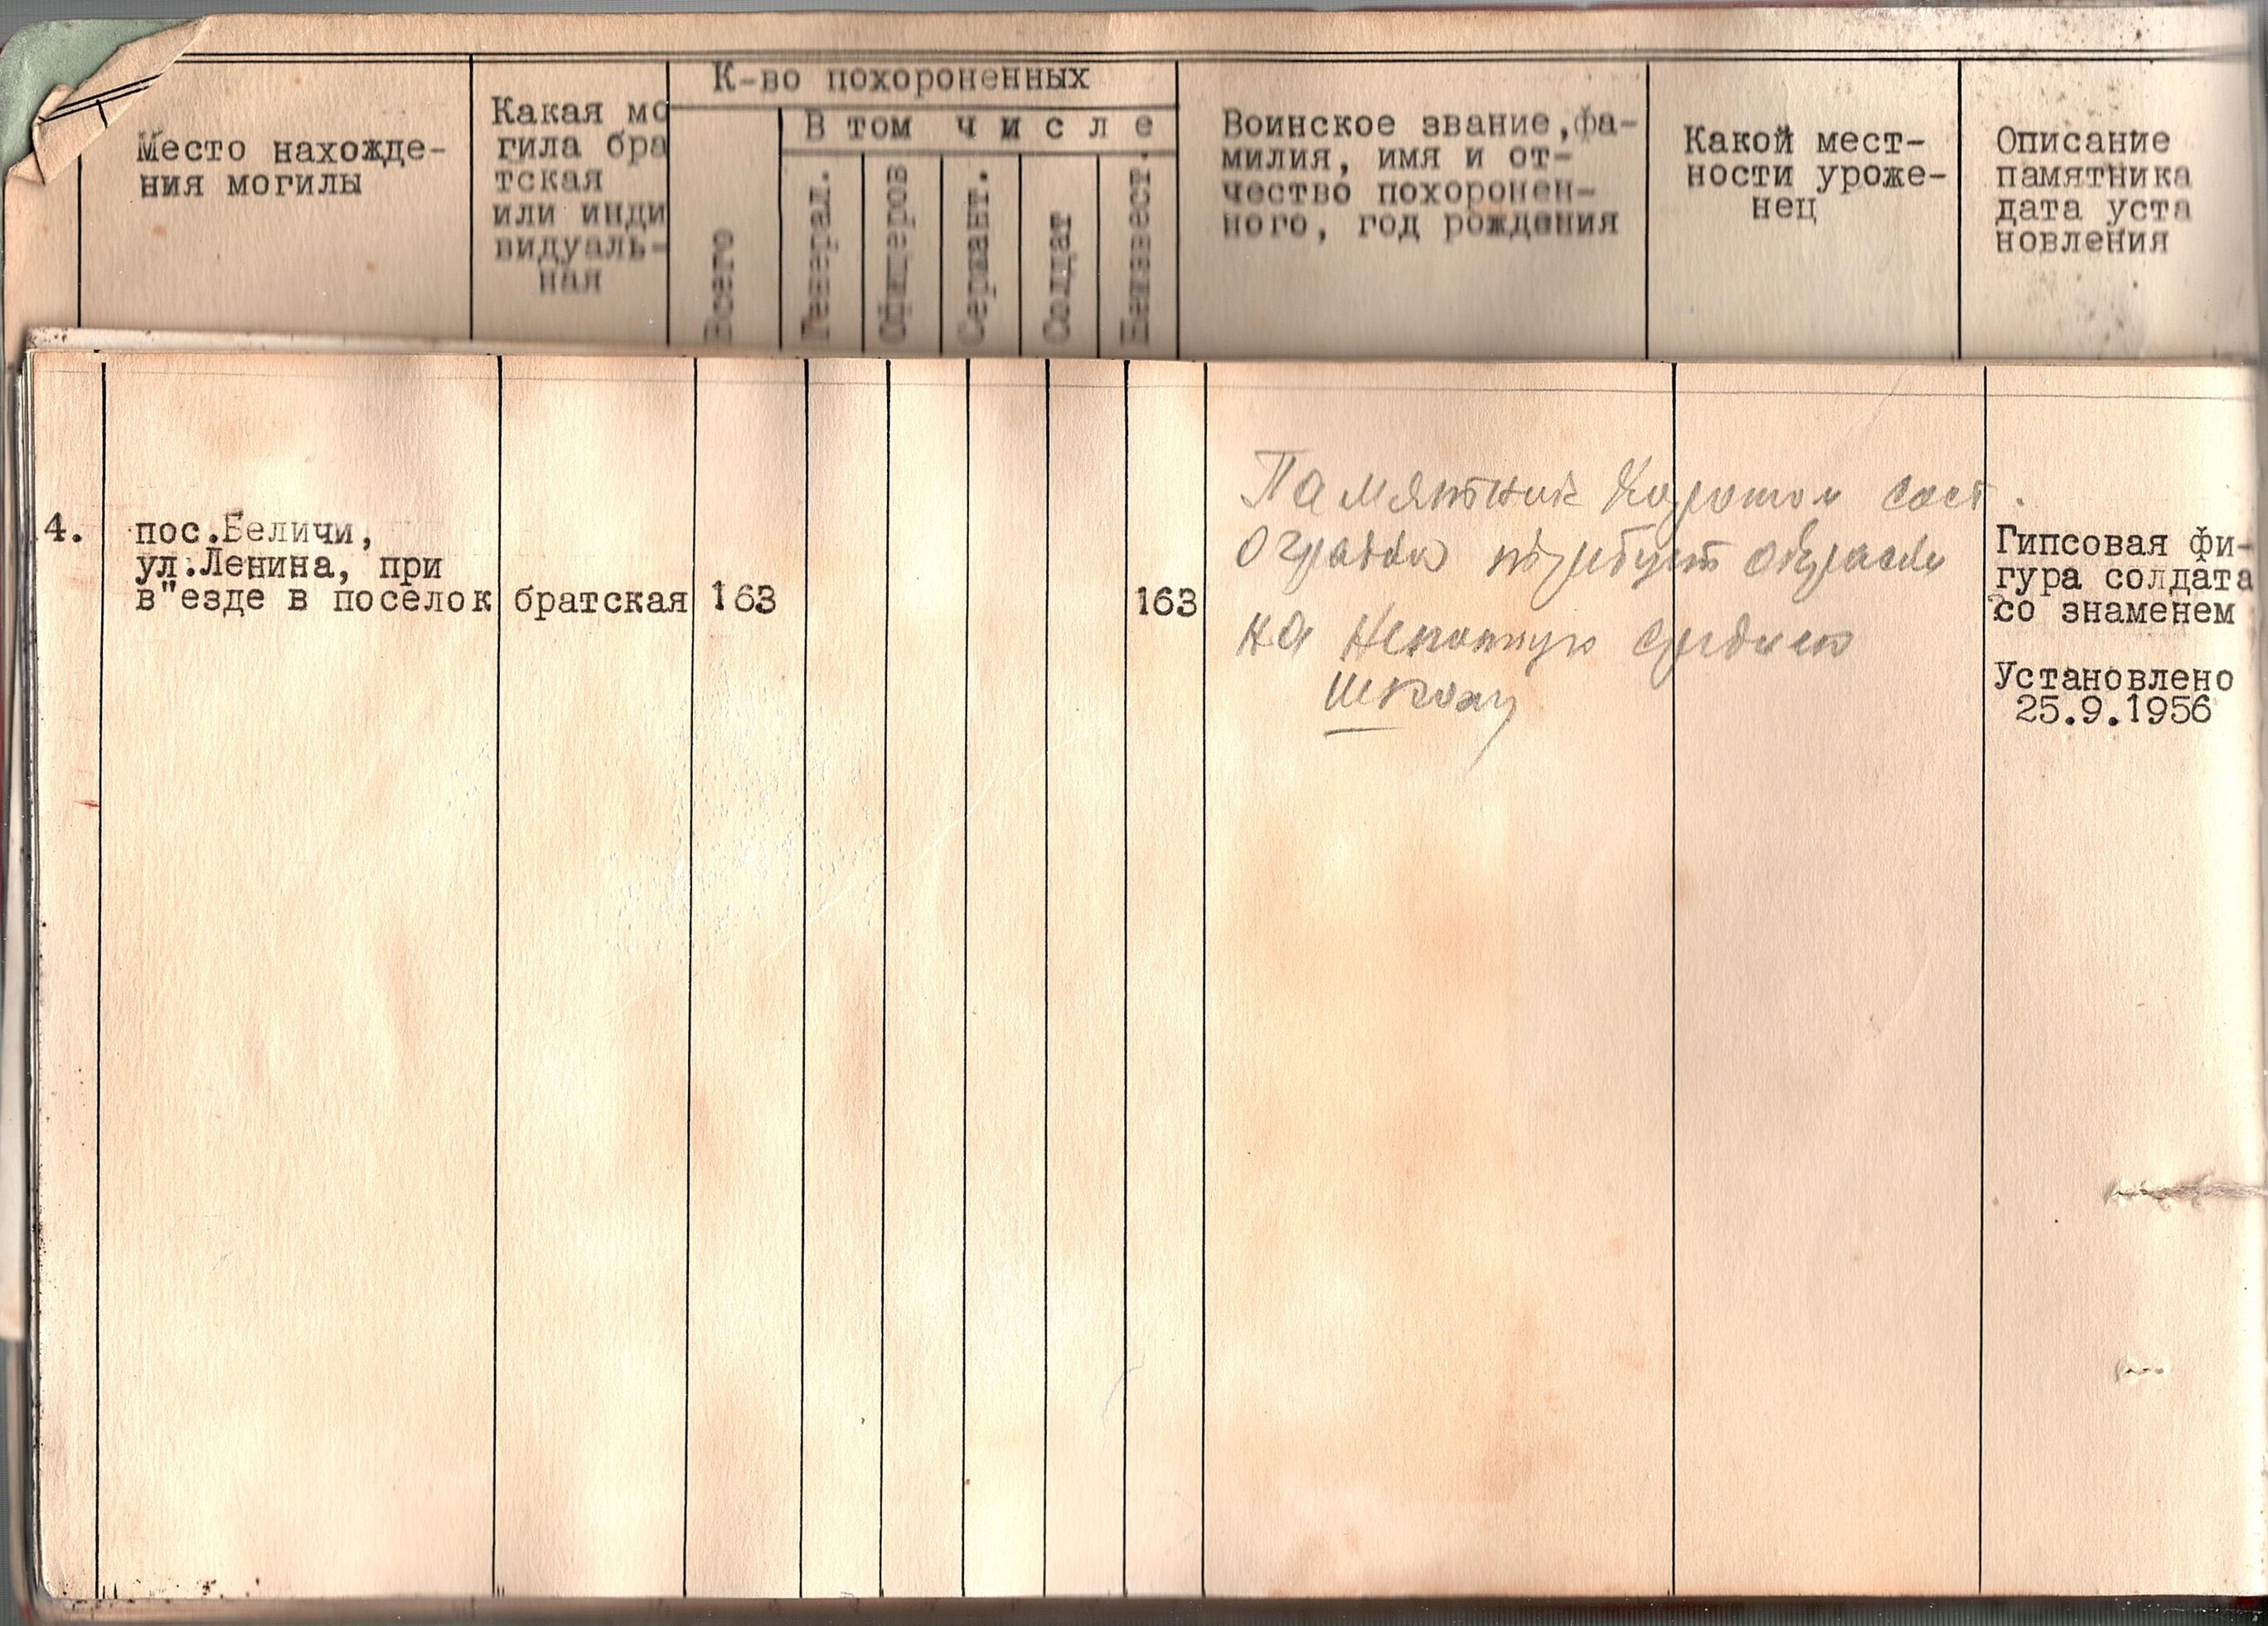 К-во похороненных
В том числе
Место нахожде-
ния могилы
Какая мо
гила бра
тская
или инди
видуаль-
ная
Всего
Генерал.
Офицеров
Сержант.
Солдат
Неизвест.
Воинское звание, фа-
милия, имя и от-
чество похоронен-
ного, год рождения
Какой мест-
ности уроже-
нец
Описание
памятника
дата уста
новления
4.
пос.Беличи,
ул.Ленина, при
в"езде в поселок
братская
163
163
Памятник хорошом сост.
Ограда требует окраски
на среднюю
школу
Гипсовая фи-
гура солдата
со знаменем
Установлено
25.9.1956